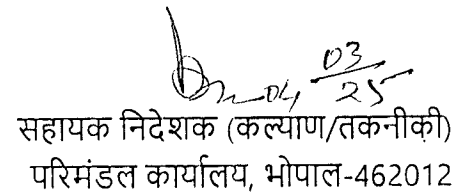 04 03/25
सहायक निदेशक (कल्याण/तकनीकी)
परिमंडल कार्यालय, भोपाल-462012